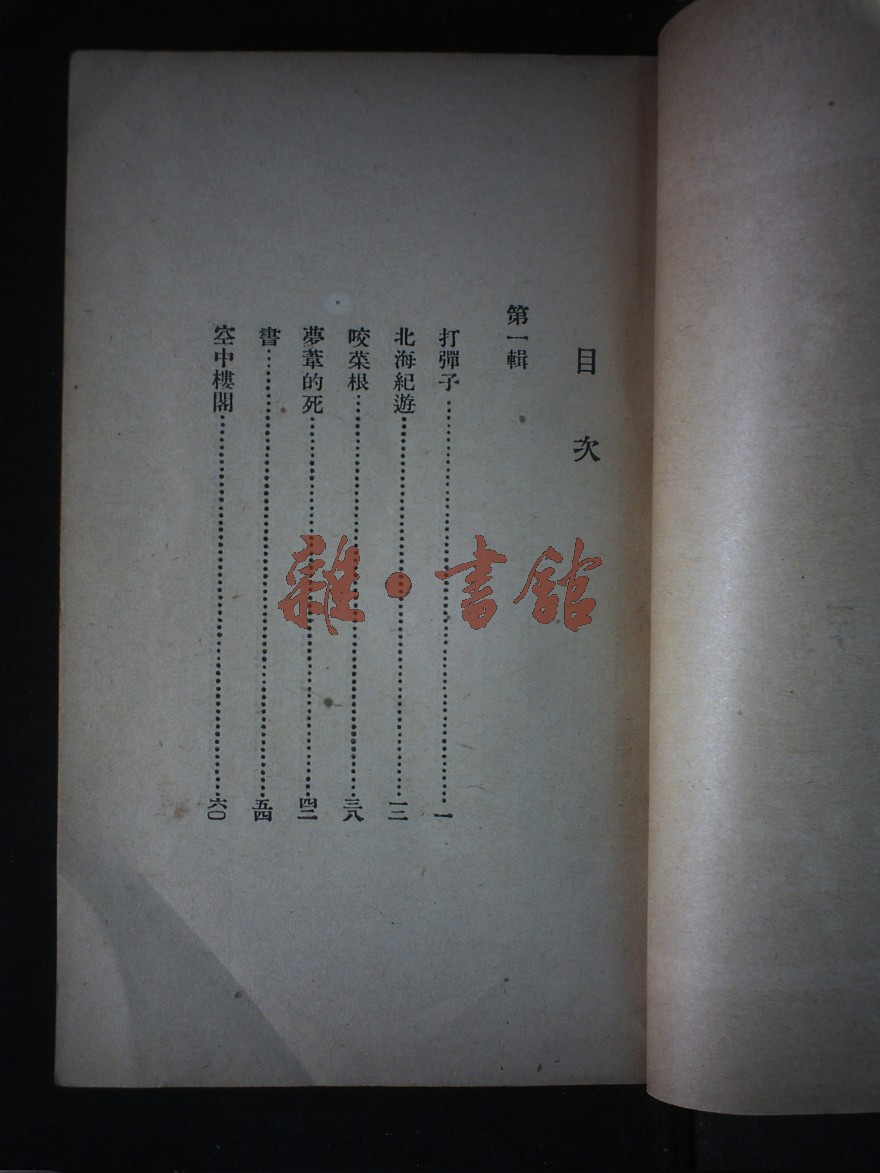 目次
第一輯
打彈子……一
北海紀遊……一三
咬菜根……三八
夢葦的死……四二
書……五四
空中樓閣……六〇
雜•書館